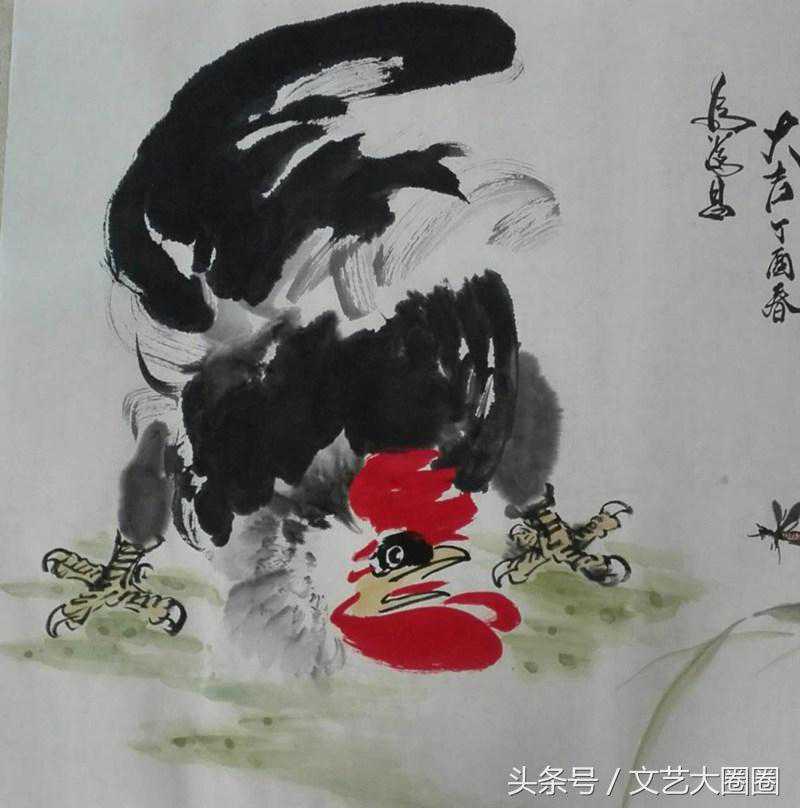 大吉丁酉春
头条号 / 文艺大圈圈